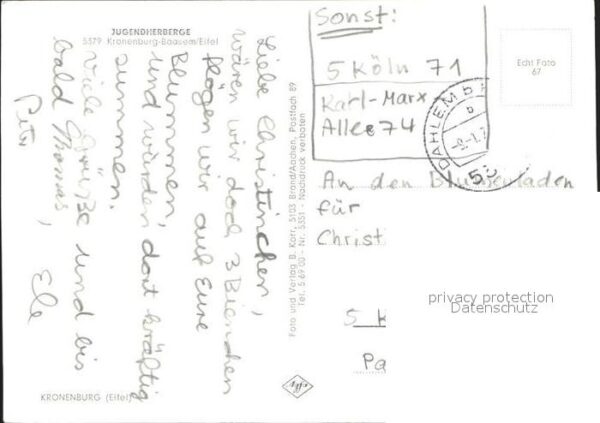 JUGENDHERBERGE
5379 Kronenburg-Baasem/Eifel
Liebe Christinchen,
wären wir doch 3 Bienchen
flögen wir auf Eure
Blummen,
und würden dort kräftig
summen.
Viele Grüße und bis
bald Thomas,
Peter
Ele
KRONENBURG (Eifel)
Foto und Verlag B. Karr, 5103 Brand/Aachen, Postfach 89
Tel. 5 69 00 - Nr. 5351 - Nachdruck verboten
Agfa
Sonst:
5 Köln 71
Karl-Marx
Allee 74
Echt Foto
67
DAHLEM b
b
53
An den Blumenladen
für
Christ
5 K
Pa
privacy protection
Datenschutz